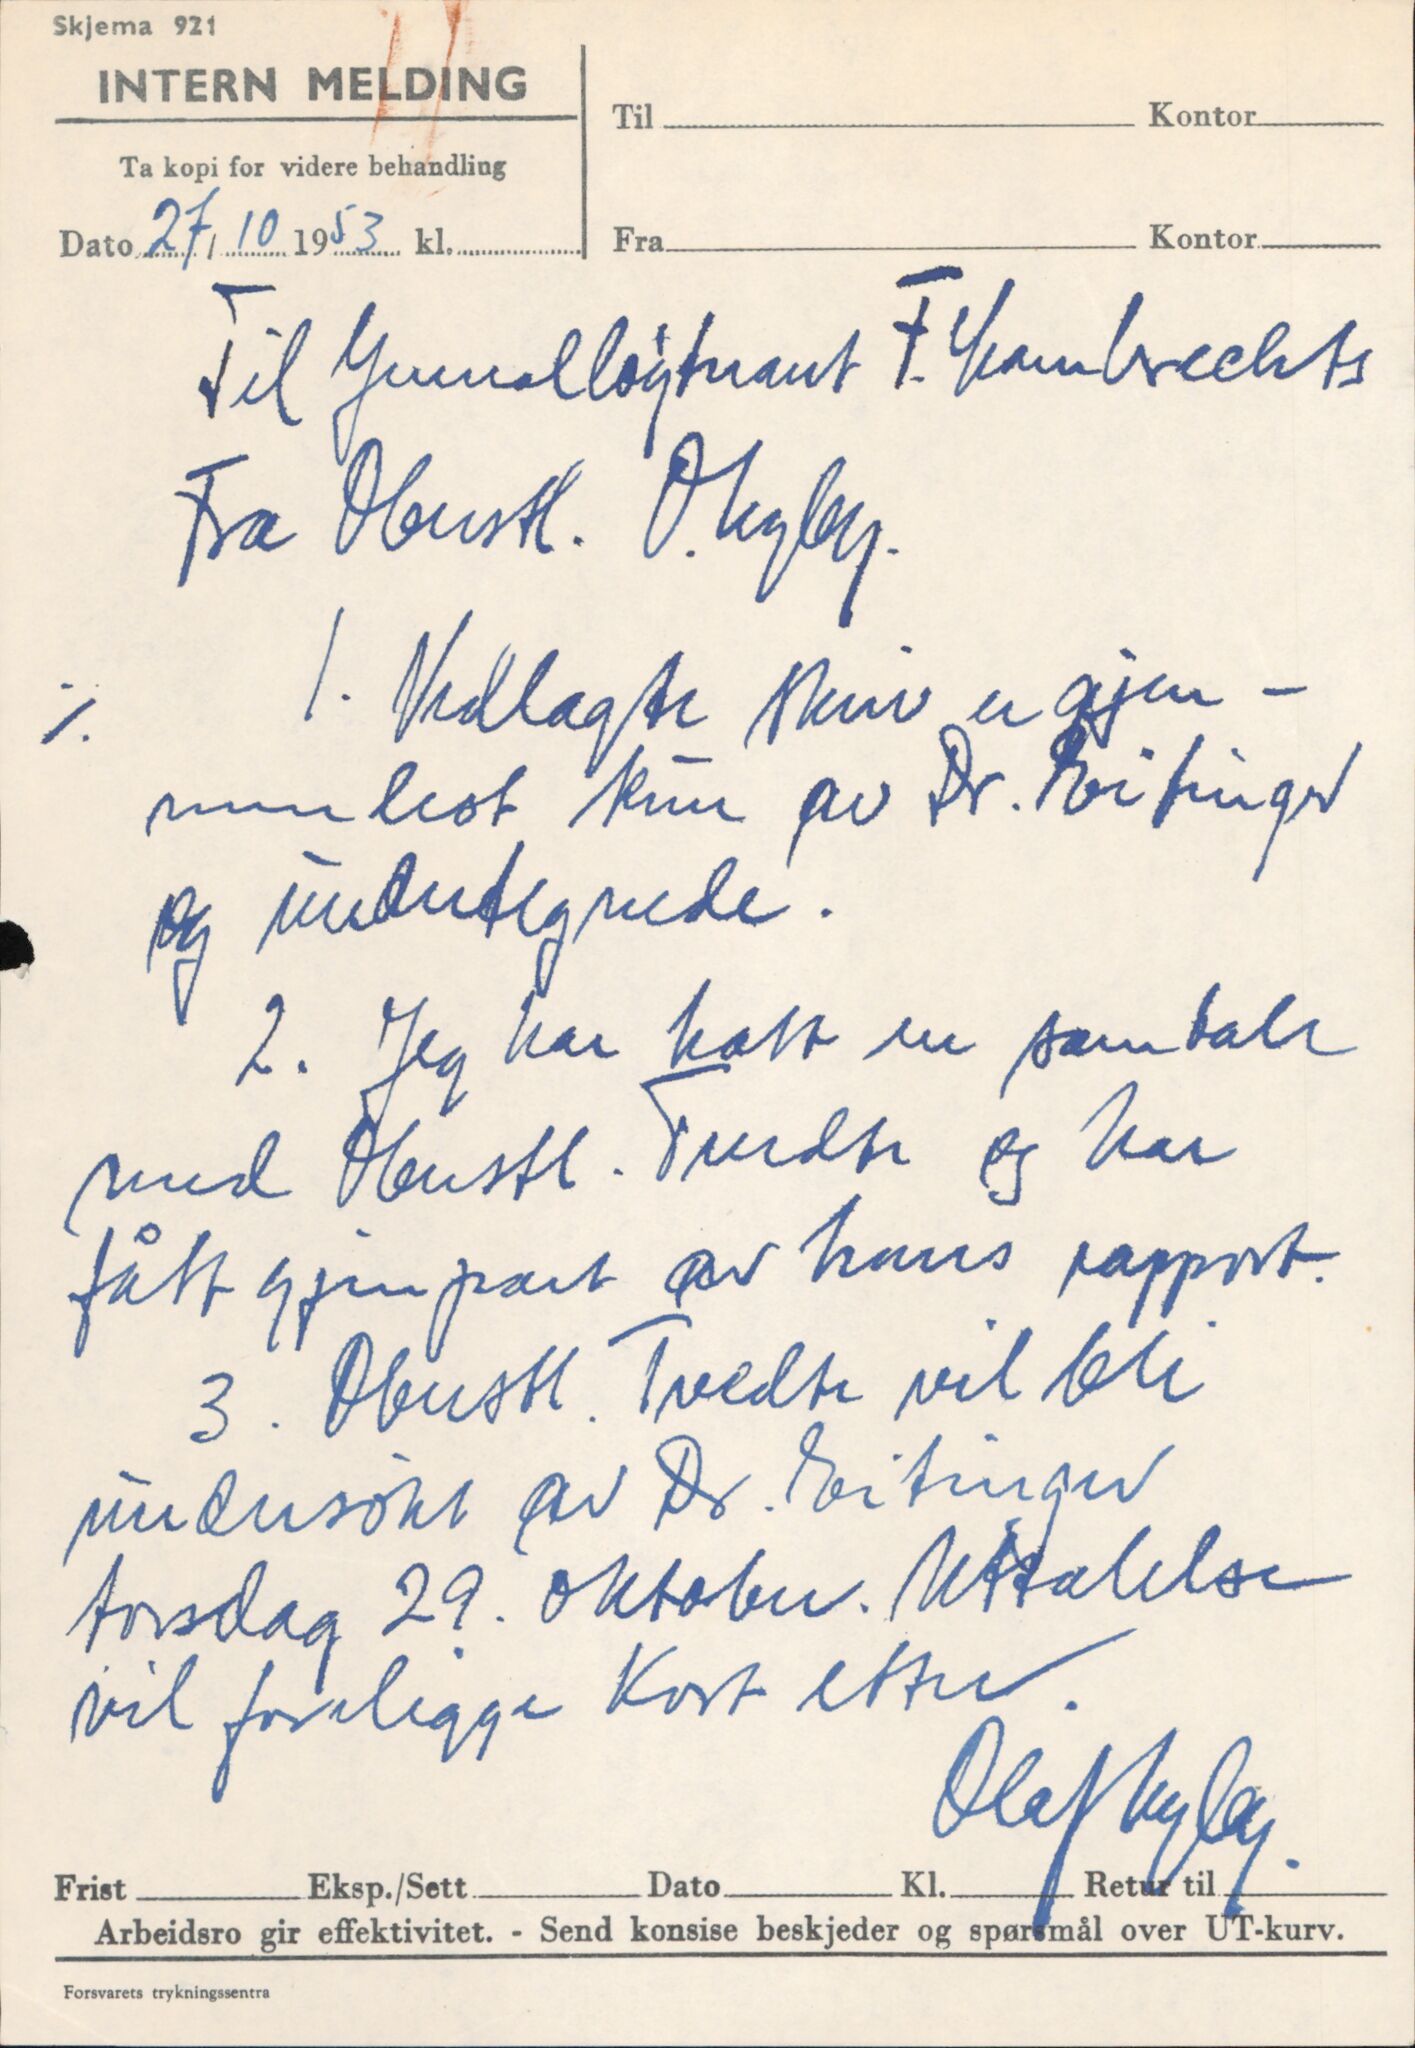 Skjema 921
INTERN MELDING
Ta kopi for videre behandling
Dato 27/ 10 1953 kl.
Til Kontor
Fra Kontor
Til Generalløytnant F. Lambrechts
Fra Oberstl. O. Nyby.
1. Vedlagte skriv er gjen-
nomlest kun av Dr. Eitinger
og undertegnede.
2. Jeg har hatt en samtale
med Oberstl. Tvedte og har
fått gjenpart av hans rapport.
3. Oberstl. Tvedte vil bli
undersøkt av Dr. Eitinger
torsdag 29. oktober. Uttalelse
vil foreligge kort etter.
Olaf Nyby.
Frist Eksp./Sett Dato Kl. Retur til
Arbeidsro gir effektivitet. - Send konsise beskjeder og spørsmål over UT-kurv.
Forsvarets trykningssentra